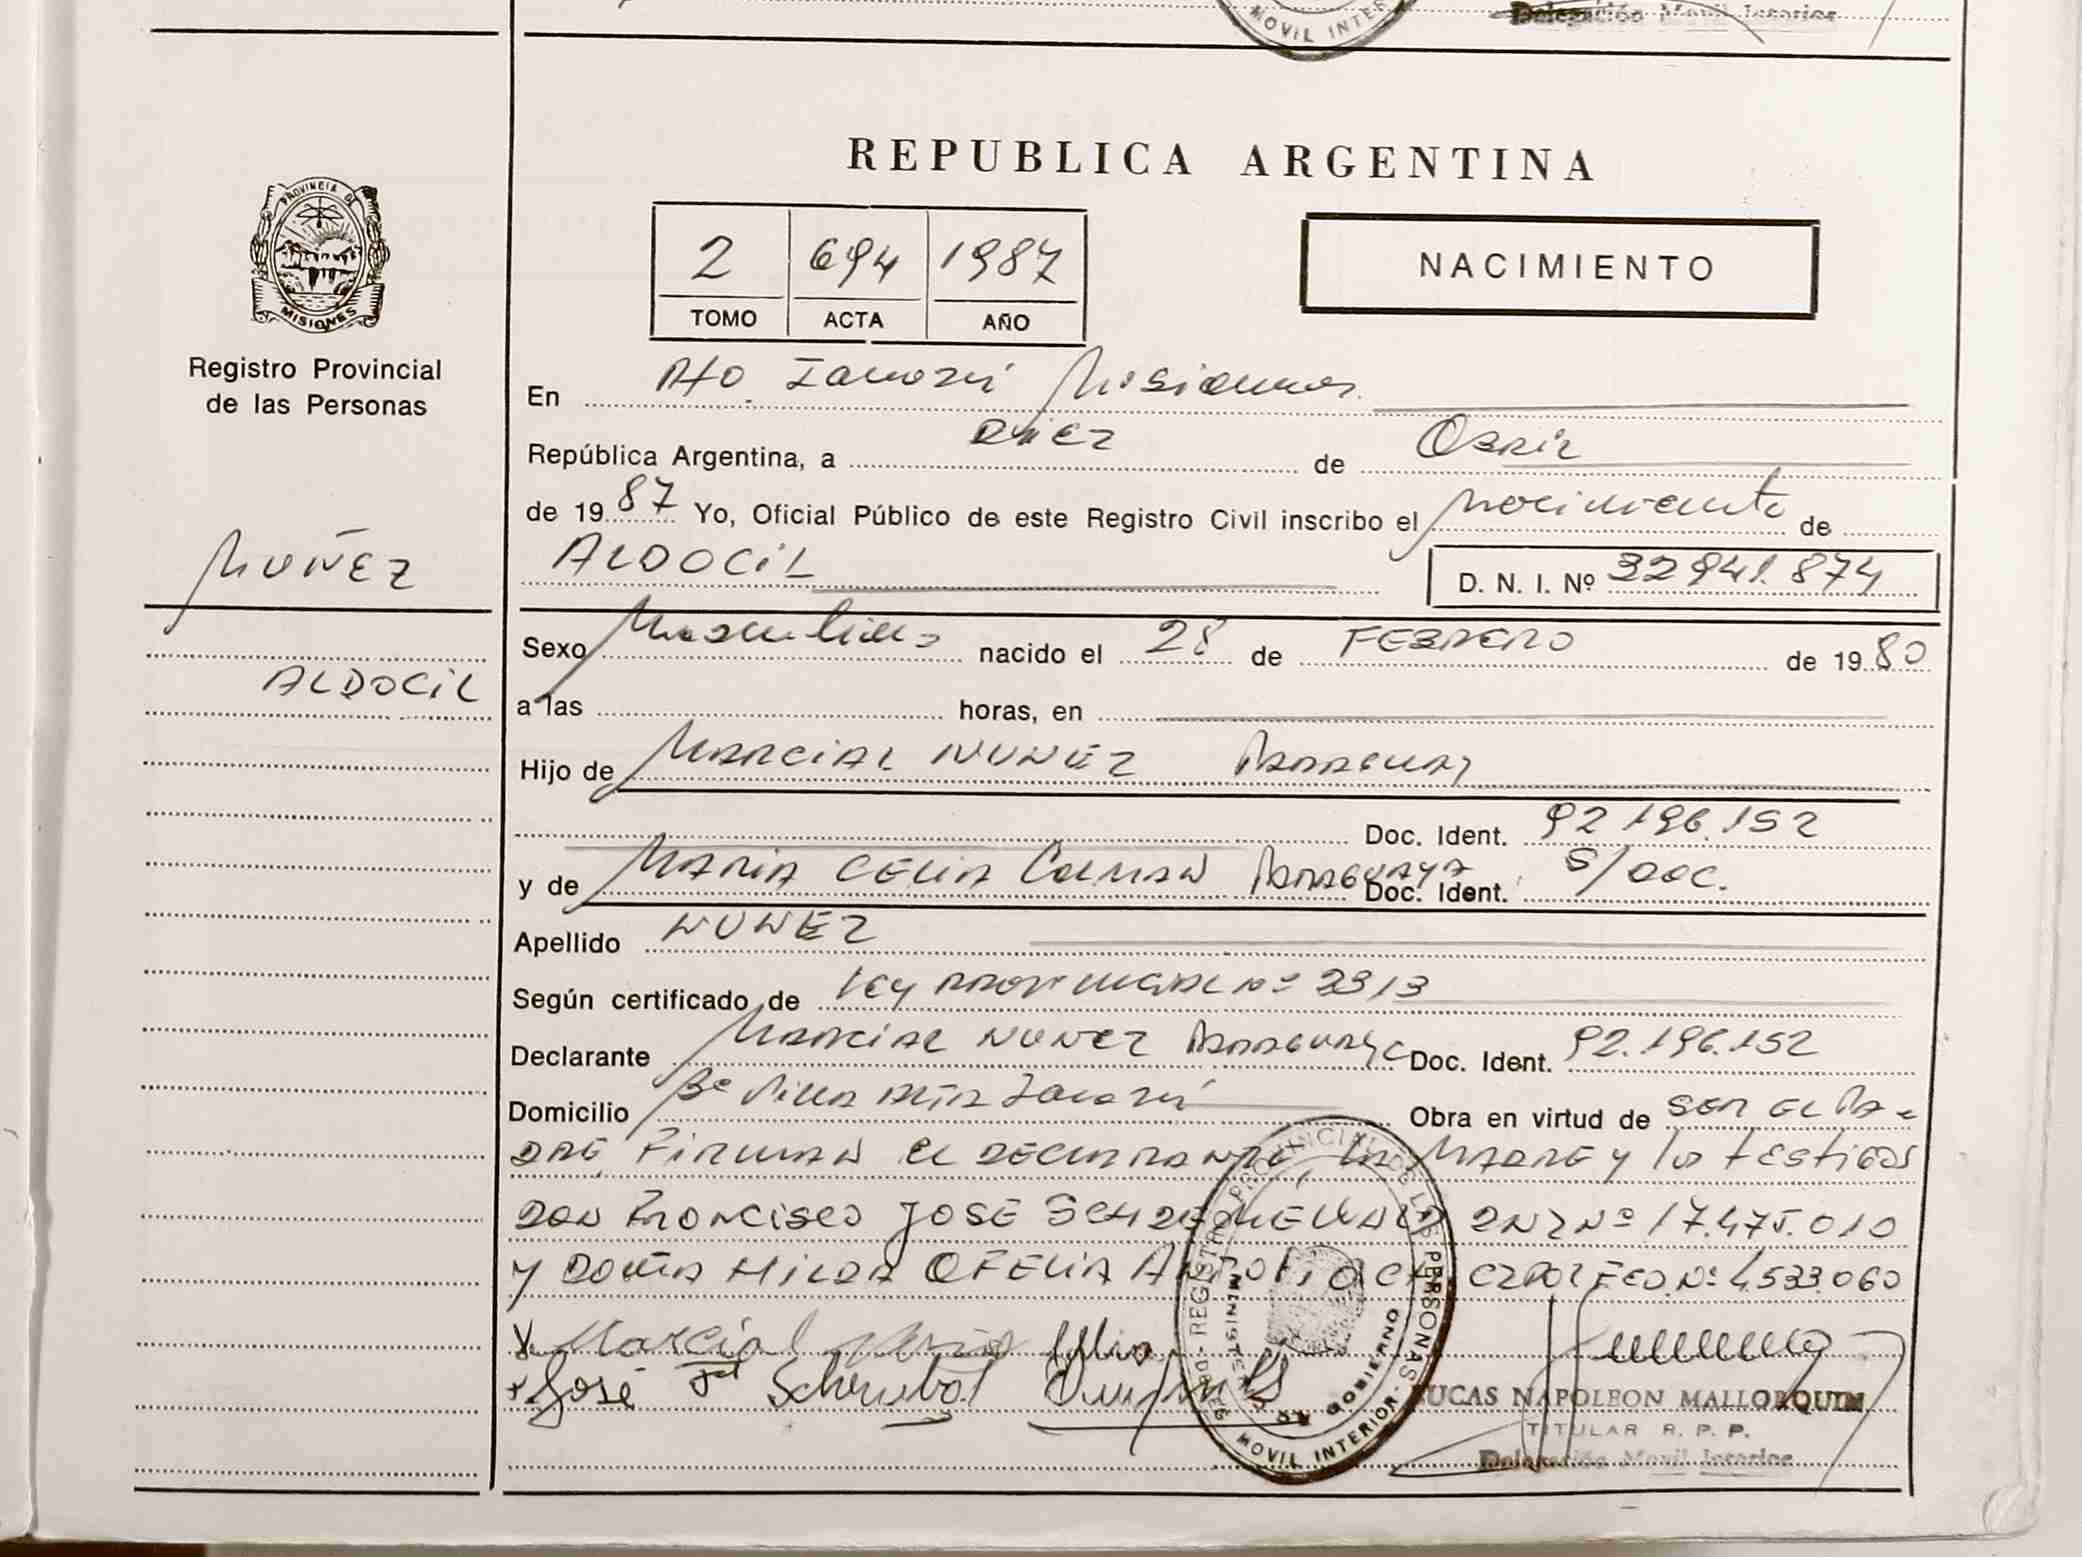 MOVIL INTER
Delegación Movil
REPUBLICA ARGENTINA
PROVINCIA DE
MISIONES
Registro Provincial
de las Personas
2 694 1987
TOMO ACTA AÑO
NACIMIENTO
En Pto. Misiones
República Argentina, a Diez de
de 1987 Yo, Oficial Público de este Registro Civil inscribo el Nacimiento de
ALDOCIL D. N. I. Nº 32 941.874
NUÑEZ
ALDOCIL
Sexo Masculino nacido el 28 de FEBRERO de 1980
a las horas, en
Hijo de MARCIAL NUNEZ
Doc. Ident. 92 196.152
y de MARIA CELIA COLMAN PARAGUAYA Doc. Ident. S/DOC.
Apellido NUNEZ
Según certificado de LEY PROVINCIAL Nº 2313
Declarante MARCIAL NUNEZ PARAGUAYO Doc. Ident. 92.196.152
Domicilio Bº Villa Obra en virtud de SER EL PA-
DRE, FIRMAN EL DECLARANTE, LA MADRE y los TESTIGOS
DON FRANCISCO JOSE DNI Nº 17.475.010
y DOÑA HILDA OFELIA Nº 4.533.060
Marcial
José
REGISTRO PROVINCIAL DE LAS PERSONAS
MINISTERIO DE GOBIERNO
MOVIL INTERIOR
LUCAS NAPOLEON MALLORQUIN
TITULAR R. P. P.
Delegación Movil